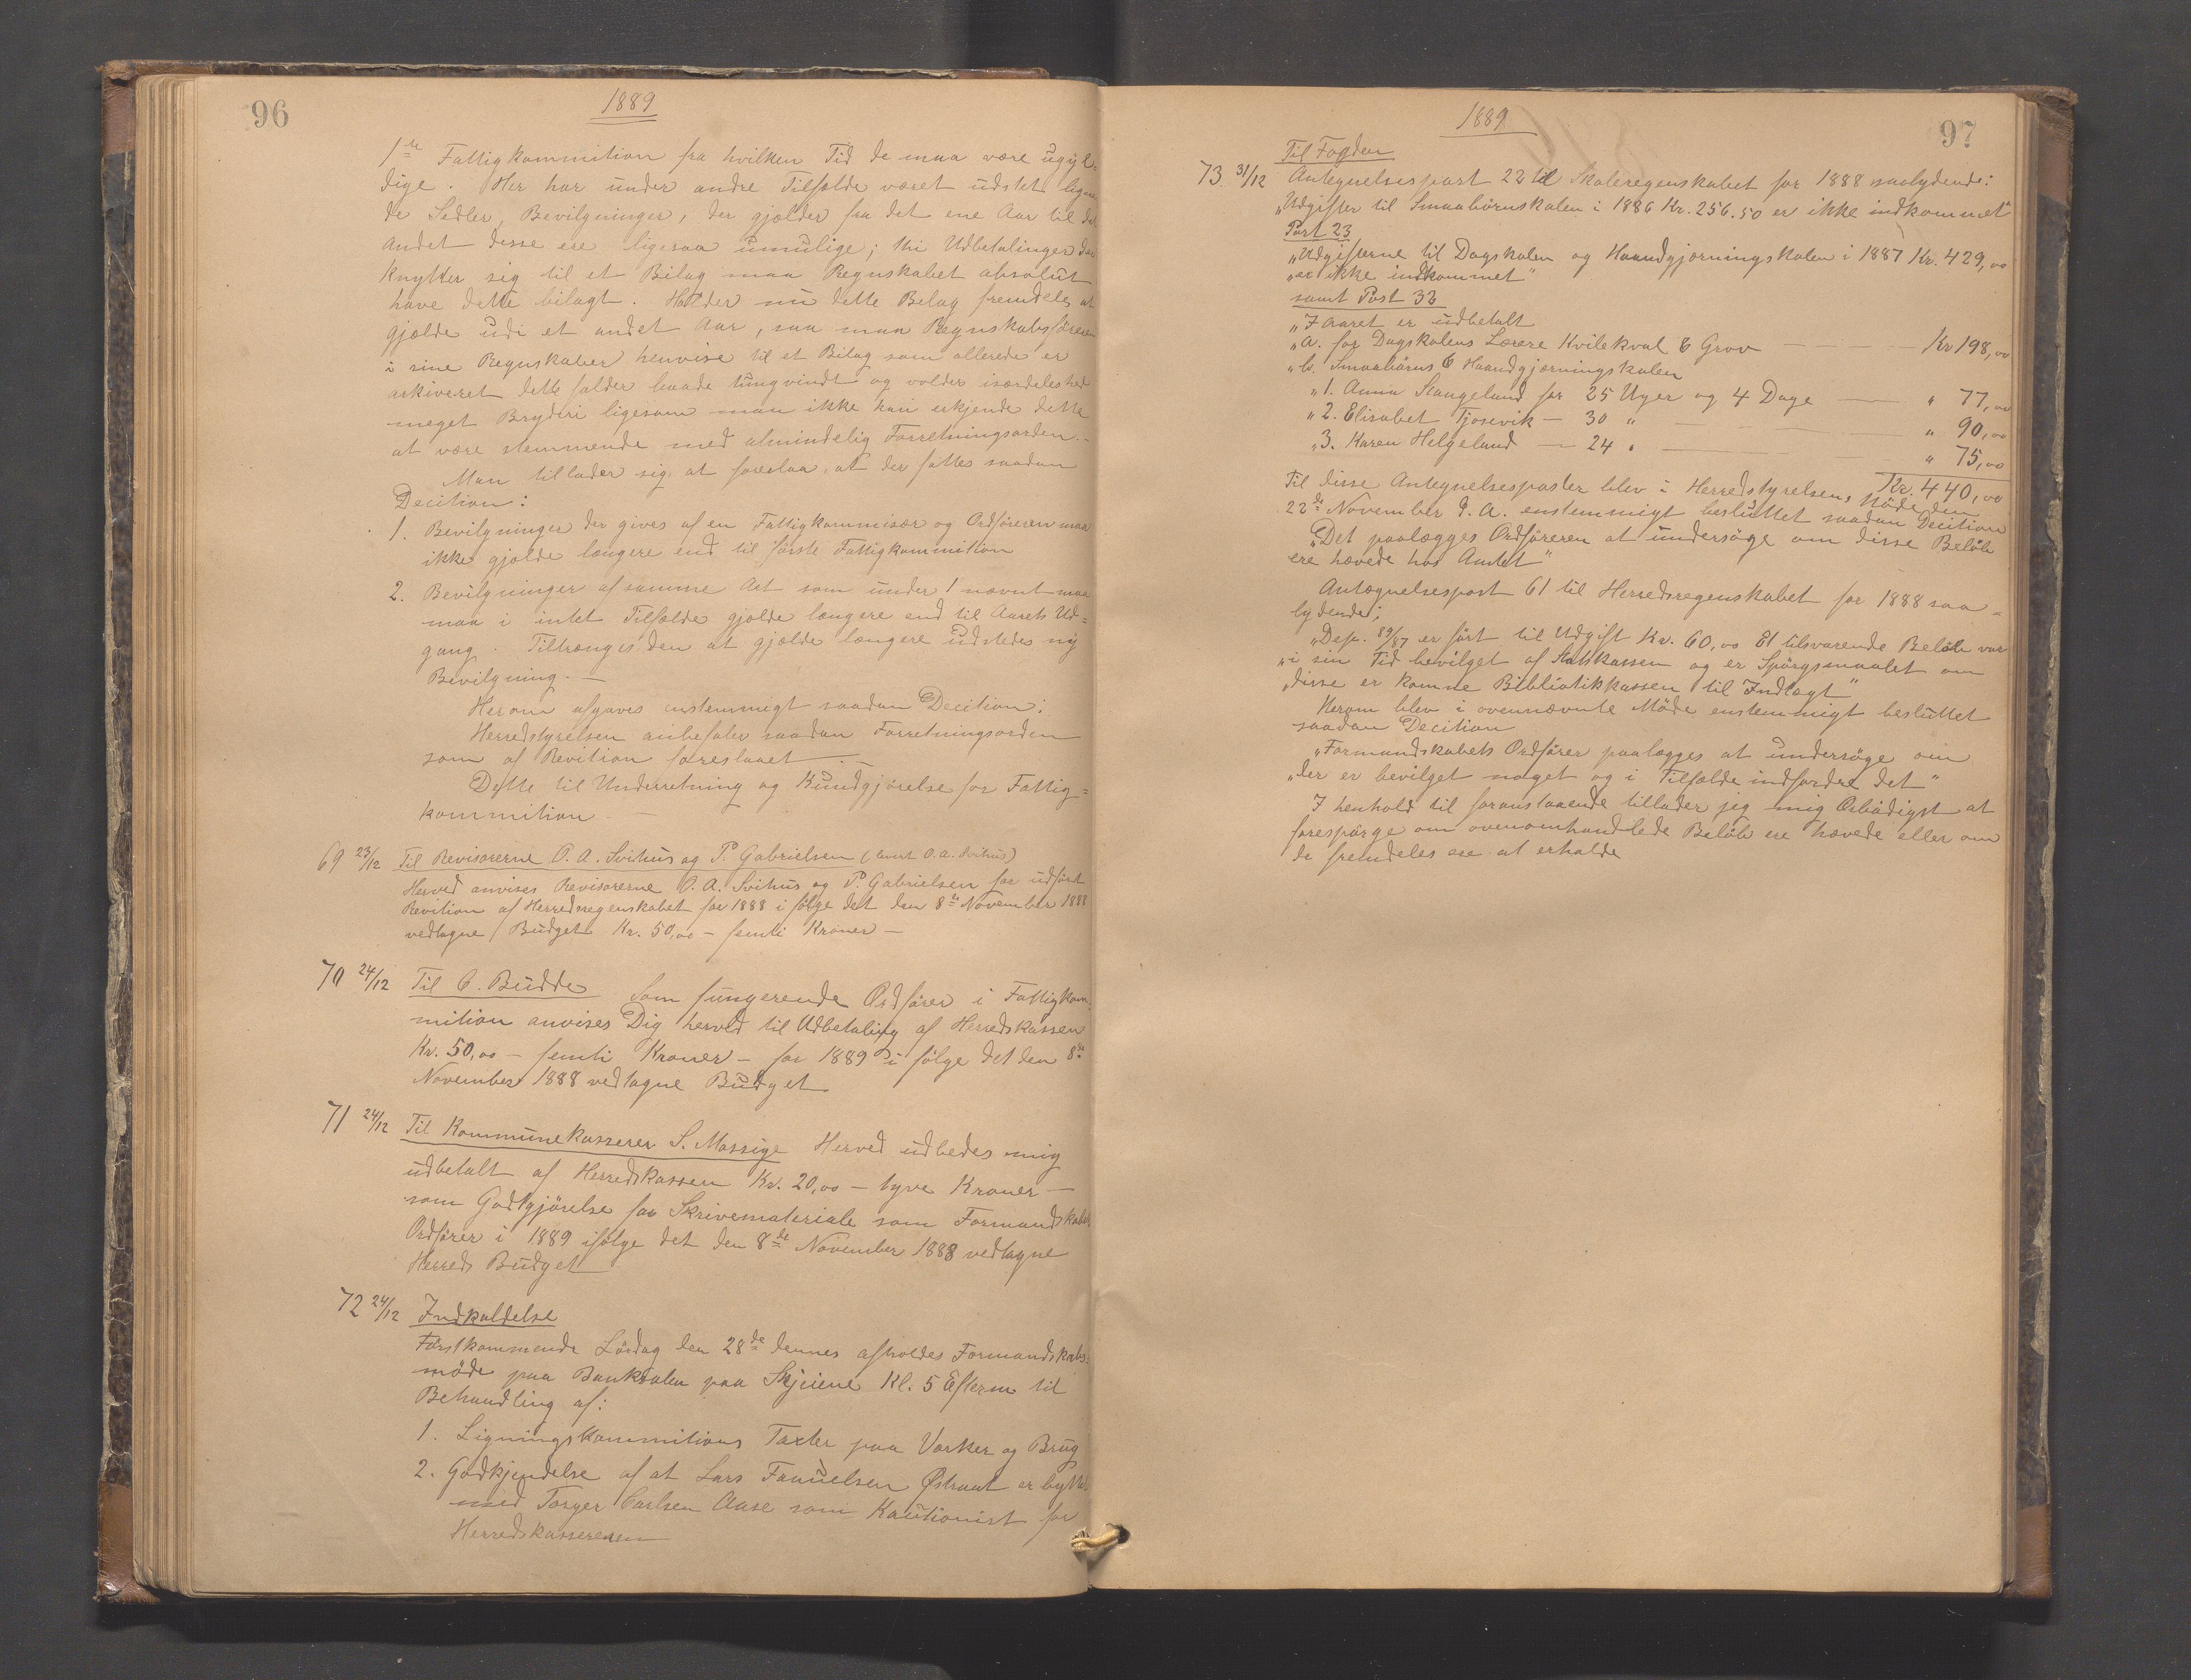 96
1889
1ste Fattigkommition fra hvilken Tid de maa være ugyl=
dige. Her har under andre Tilfælde været udstet lignen
de Sedler, Bevilgninger, der gjælder fra det ene Aar til det
Andet desse ere ligesaa umulige; thi Udbetalinger der
knytter sig til et Bilag maa Regnskabet absolut
have dette bilagt. Hvis der nu dette Belag fremdeles at
gjælde udi et andet Aar, saa maa Regnskabsføreren
i sine Regnskaber henvise til et Bilag som allerede er
arkiveret dette falder baade tungvindt og volder isærdeleshed
meget Bryderi ligesom man ikke kan erkjende dette
at være stemmende med almindelig Forretningsorden.-
Man tillader sig at foreslaa, at der fattes saadan
Decition:
1. Bevilgninger der gives af en Fattigkommisær og Ordføreren maa
ikke gjælde længere end til første Fattigkommition
2. Bevilgninger af samme Art som under 1 nævnt maa
maa i intet Tilfælde gjælde længere end til Aarets Ud=
gang. Tiltrænges den at gjælde længere udstedes ny
Bevilgning. —
Herom afgaves enstemmigt saadan Decition:
Herredstyrelsen anbefaler saadan Forretningsorden
som af Revition foreslaaet —
Dette til Underretning og Kundgjørelse for Fattig=
kommition —
69 23/12 Til Revisorerne O. A. Svihus og P. Gabrielsen (sent O. A. Svihus)
Herved anvises Revisorerne O. A. Svihus og P. Gabrielsen for udført
Revition af Herredsregenskabet for 1888 i følge det den 8de November 1888
vedtagne Budget Kr. 50,00 – femti Kroner –
70 24/12 Til C. Budde Som fungerende Ordfører i Fattigkom-
mition anvises Dig herved til Udbetaling af Herredskassen
Kr. 50,00 – femti Kroner – for 1889 i følge det den 8de
November 1888 vedtagne Budget
71 24/12 Til Kommunekasserer S. Massige Herved udbedes mig
udbetalt af Herredskassen Kr. 20,00 – tyve Kroner –
som Godtgjørelse for Skrivemateriale som Formandskabets
Ordfører i 1889 ifølge det den 8de November 1888 vedtagne
Herreds Budget
72 24/12 Indkaldelse
Førstkommende Lørdag den 28de dennes afholdes Formandskabs=
møde paa Banklokalen paa Skjeiene Kl. 5 Efterm til
Behandling af:
1. Ligningskommitions Taxter paa Værker og Brug
2. Godkjendelse af at Lars Tanuelsen Østraat er byttet
med Torger Carlsen Aase som Kautionist for
Herredskassereren
97
1889
Til Fogden
73 31/12 Antegnelsespost 22 til Skoleregenskabet for 1888 saalydende:
„Udgifter til Smaabørnskolen i 1886 Kr. 256.50 er ikke indkommet"
Post 23
„Udgifterne til Dagskolen og Haandgjørningskolen i 1887 Kr. 429,00
„er ikke indkommet"
samt Post 32
„I Aaret er udbetalt
„a. for Dagskolens Lærere Kvilekval & Grov — Kr 198,00
„b. Smaabørns & Haandgjærningskolen
„1. Anna Stangeland for 25 Uger og 4 Dage — „ 77,00
„2. Elisabet Tjosevik – 30 „ — „ 90,00
„3. Karen Helgeland — 24 „ — „ 75,00
Kr. 440,00
Til disse Antegnelsesposter blev i Herredstyrelsens Møde den
22de November d. A. enstemmigt besluttet saadan Decition
„Det paalægges Ordføreren at undersøge om disse Beløb
ere hævede hos Amtet"
Antegnelsespost 61 til Herredsregenskabet for 1888 saa=
lydende;
„Dep. 89/87 er ført til Udgift Kr. 60,00 Et tilsvarende Beløb var
„i sin Tid bevilget af Statskassen og er Spørgsmaalet om
„disse er komne Bibliotikkassen til Indtægt"
Herom blev i ovennævnte Møde enstemmigt besluttet
saadan Decition
„Formandskabets Ordfører paalægges at undersøge om
„der er bevilget noget og i Tilfælde indfordre det"
I henhold til foranstaaende tillader jeg mig Ærbødigst at
forespørge om ovenomhandlede Beløb ere hævede eller om
de fremdeles ere at erholde